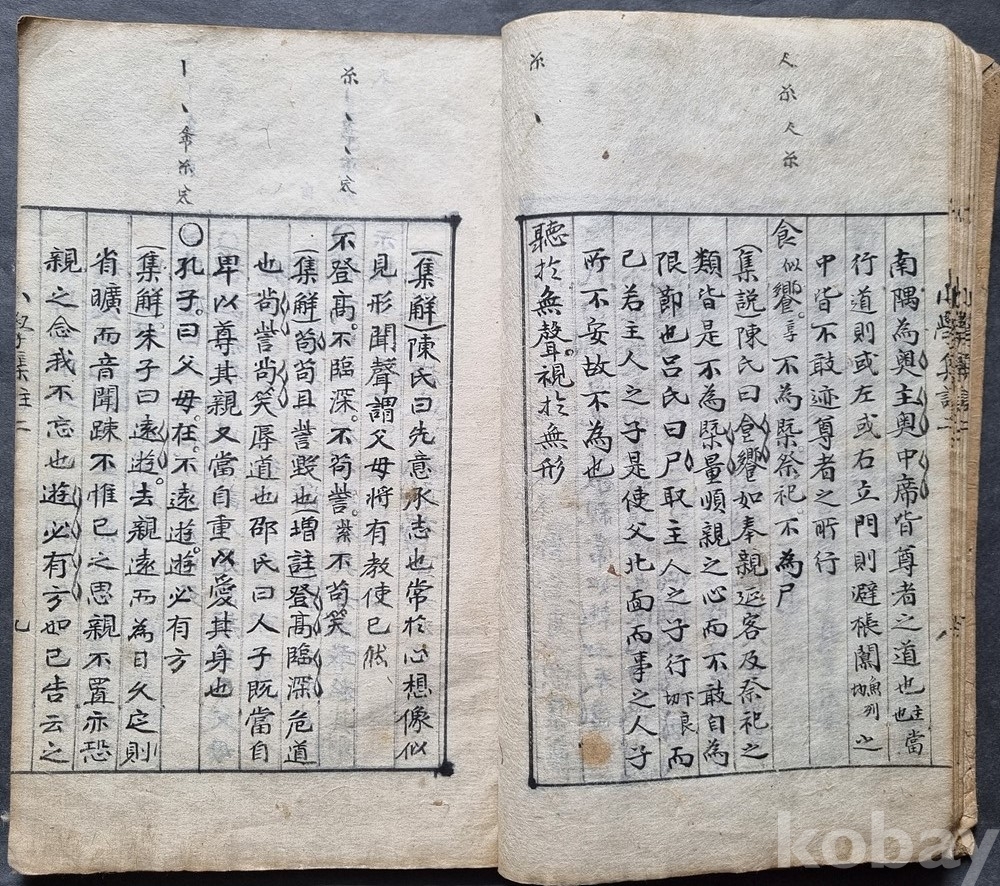 南隅為奧主奧中席皆尊者之道也主也當
行道則或左或右立門則避棖闑魚列切之
中皆不敢迹尊者之所行
食似饗享不為槩祭祀不為尸
集說陳氏曰食饗如奉親延客及祭祀之
類皆是不為槩量順親之心而不敢自為
限節也呂氏曰尸取主人之子行下良切而
已若主人之子是使父北面而事之人子
所不安故不為也
聽於無聲視於無形
集解陳氏曰先意承志也常於心想像似
見形聞聲謂父母將有教使已然
不登高不臨深不苟訾紫不苟笑
集解苟苟且訾毀也增註登高臨深危道
也苟訾苟笑辱道也邵氏曰人子既當自
卑以尊其親又當自重以愛其身也
○孔子曰父母在不遠遊遊必有方
集解朱子曰遠遊去親遠而為日久定則
省曠而音聞踈不惟已之思親不置亦恐
親之念我不忘也遊必有方如已告云之
小學集註二 九
kobay